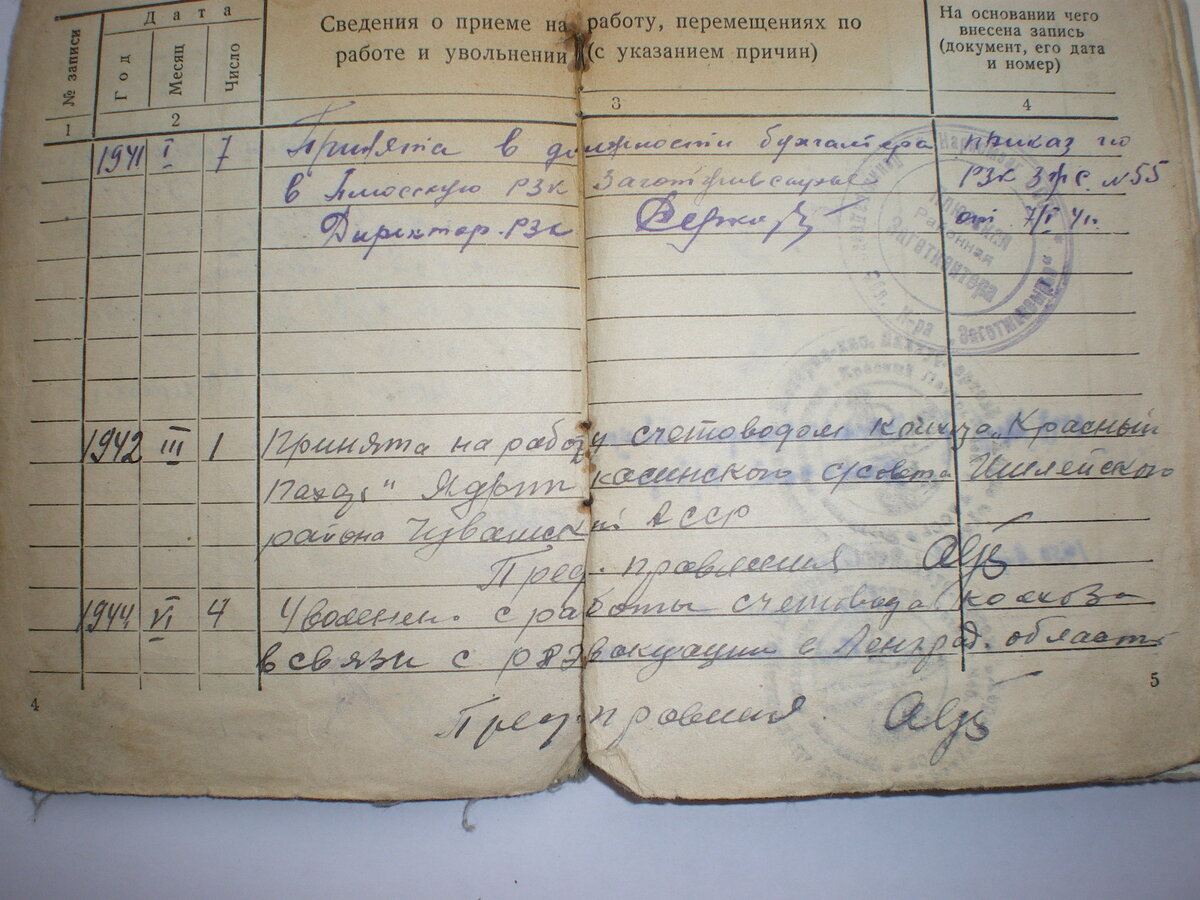 № записи
Дата
Год
Месяц
Число
Сведения о приеме на работу, перемещениях по
работе и увольнении (с указанием причин)
На основании чего
внесена запись
(документ, его дата
и номер)
1
2
3
4
1941 I 7 Принята в должности бухгалтера приказ по
в Плюсскую РЗК РЗК № 55
Директор РЗК от 7/I 41г.
Плюсская
Районная
1942 III 1 Принята на работу счетоводом колхоза „Красный
Пахарь“ Ядринкасинского с/совета Ишлейского
района Чувашской АССР
Пред. правления
1944 VI 4 Уволена с работы счетовода колхоза
в связи с рэвакуацией в Ленград. область
Пред. правления
4
5